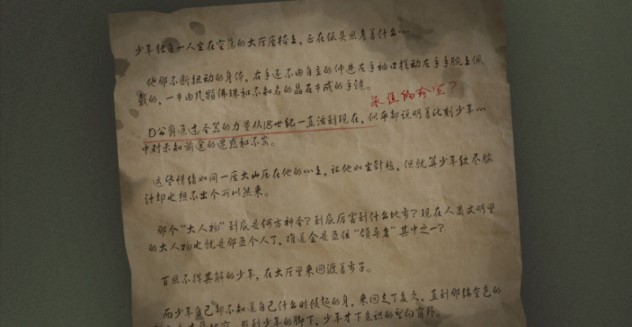 少年独自一人坐在空荡的大厅座椅上，正在低头思考着什么…
他那不断扭动的身体，右手还不由自主的伸进左手袖口拨动左手手腕上佩
戴的，一串由几颗佛珠和不知名的晶石串成的手链。
D公爵通过圣器的力量从18世纪一直活到现在，似乎都说明着此刻少年…
中对未知前途的迷惑和不安。
这些情绪如同一座大山压在他的心上，让他如坐针毡，但就算少年绞尽脑
汁却也想不出个所以然来。
那个“大人物”到底是何方神圣？到底厉害到什么地步？现在人类文明里
的大人物也就是那四个人了，指还会是 “领导者”其中之一？
百思不得其解的少年，在大厅里来回踱着步子。
而少年自己却不知道自己什么时候起的身，来回走了多久，直到那
到少年的脚下，少年才下意识的望向